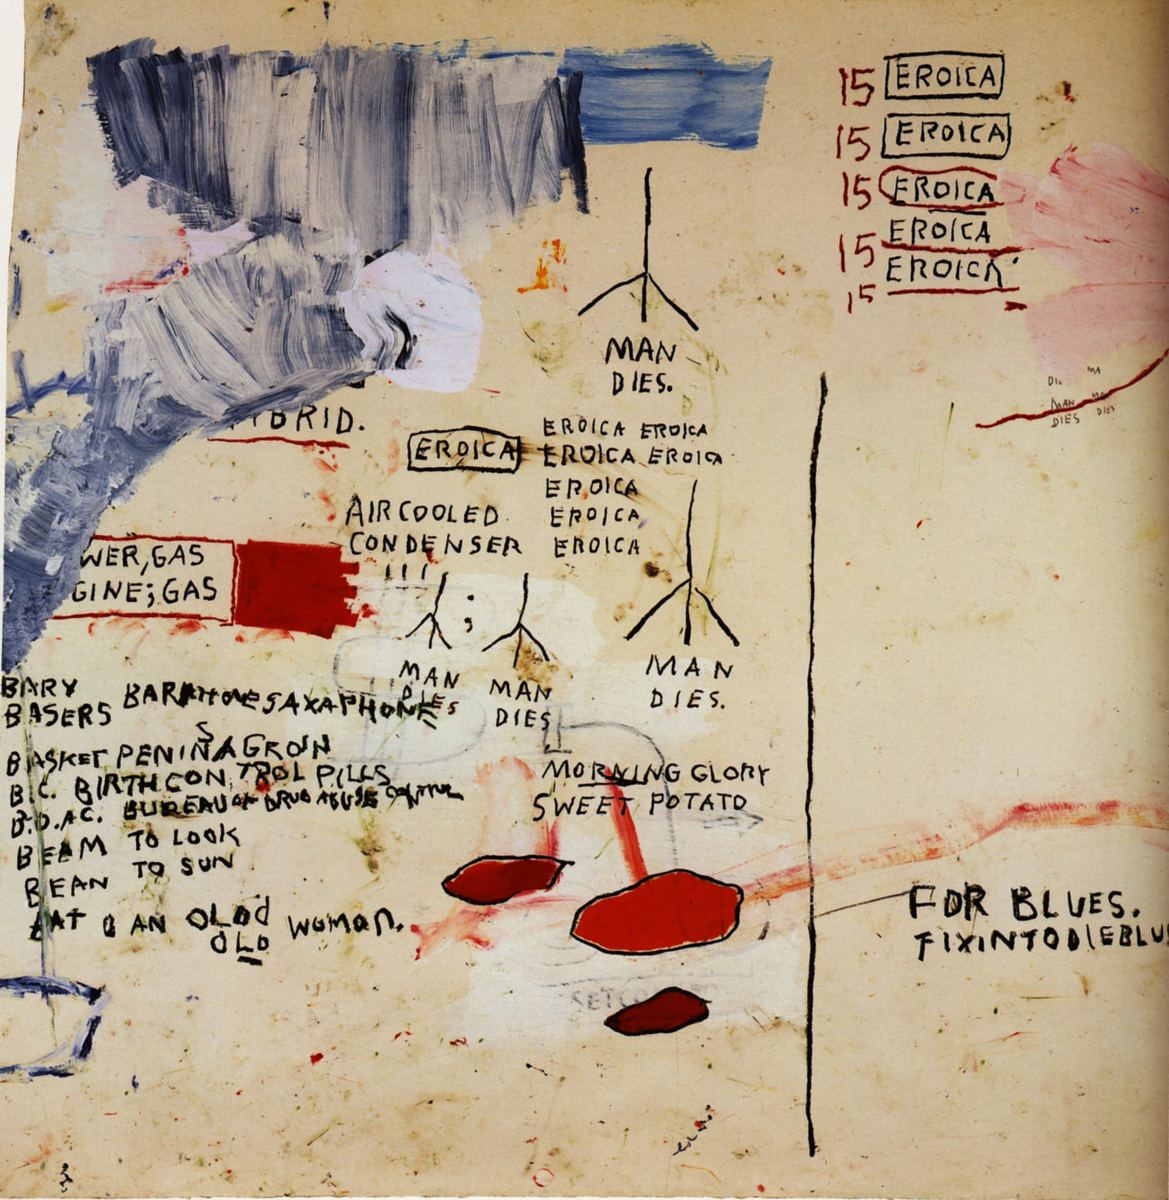 15 EROICA
15 EROICA
15 EROICA
15 EROICA
15 EROICA
MAN
DIES.
MA
MAN
DIES
DIES
BRID.
EROICA
EROICA EROICA
EROICA EROICA
EROICA
EROICA
EROICA
AIRCOOLED
CONDENSER
WER, GAS
GINE; GAS
;
MAN
DIES
MAN
DIES
MAN
DIES.
BARY
BASERS BARITONE SAXAPHONE
BASKET PENIS IN A GROIN
B.C. BIRTH CONTROL PILLS
B.D.A.C. BUREAU OF DRUG ABUSE CONTROL
BEAM TO LOOK
BEAN TO SUN
EAT AN OLD
OLD WOMAN.
MORNING GLORY
SWEET POTATO
FOR BLUES.
FIXINTODIEBLU